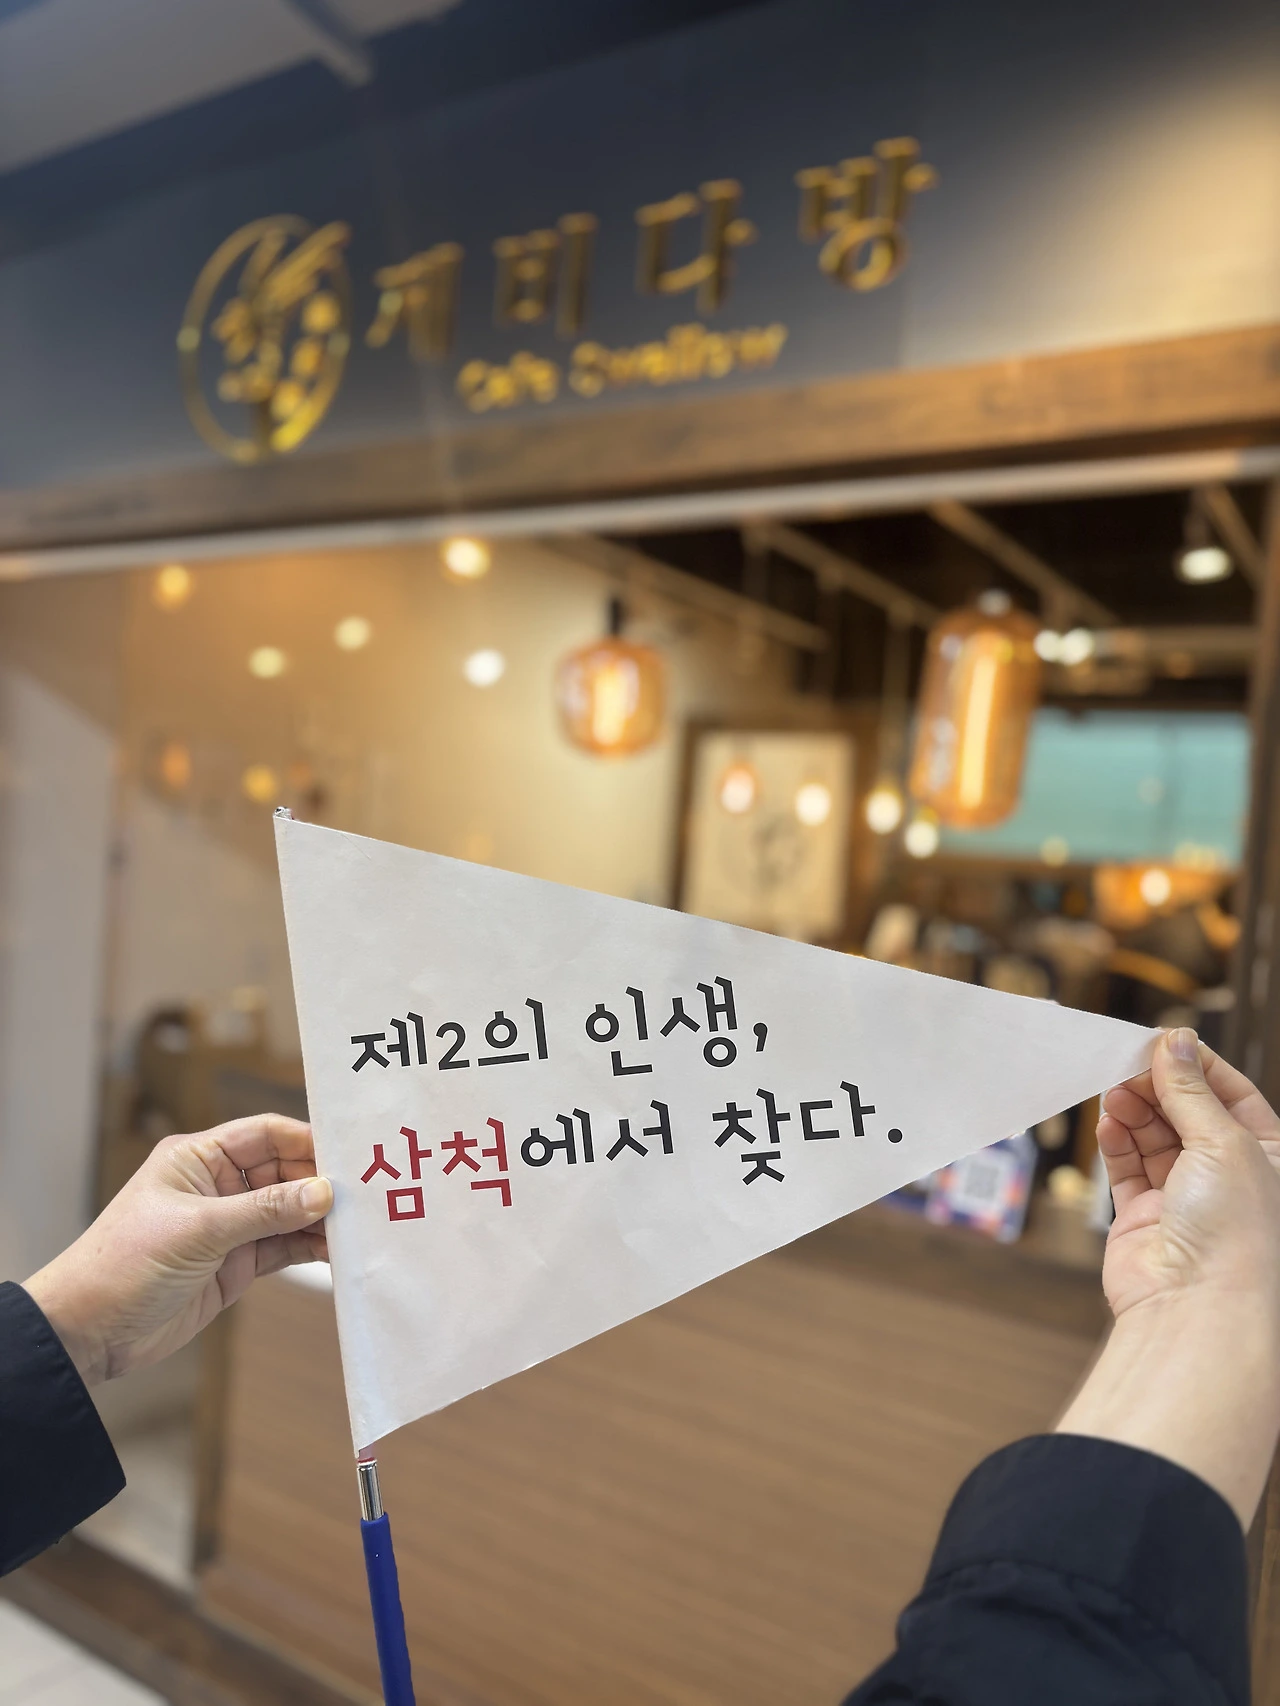 제비다방
Cafe Swallow
제2의 인생,
삼척에서 찾다.